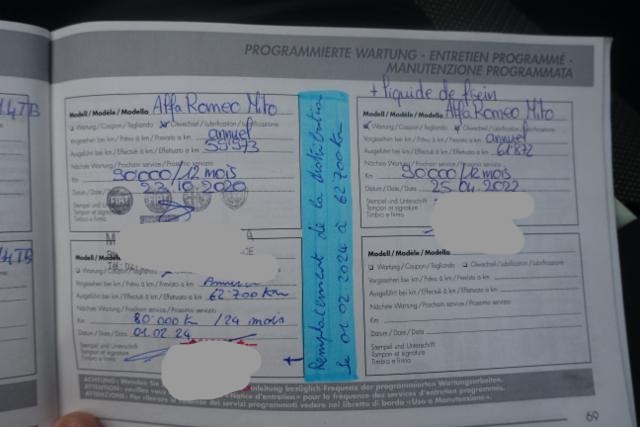 PROGRAMMIERTE WARTUNG - ENTRETIEN PROGRAMMÉ -
MANUTENZIONE PROGRAMMATA
Modell/Modèle/Modello Alfa Romeo Mito
Wartung/Coupon/Tagliando Ölwechsel/Lubrification/Lubrificazione
Vorgesehen bei km/Prévu à km/Previsto a km annuel
Ausgeführt bei km/Effectué à km/Effettuato a km 59'973
Nächste Wartung/Prochain service/Prossimo servizio
Km 90000/12 mois
Datum/Date/Data 23.10.2020
Stempel und Unterschrift
Tampon et signature
Timbro e firma
Modell/Modèle/Modello
Wartung/Coupon/Tagliando Ölwechsel/Lubrification/Lubrificazione
Vorgesehen bei km/Prévu à km/Previsto a km
Ausgeführt bei km/Effectué à km/Effettuato a km 62'700 km
Nächste Wartung/Prochain service/Prossimo servizio
Km 80'000 km /24 mois
Datum/Date/Data 01.02.24
Stempel und Unterschrift
Tampon et signature
Timbro e firma
Remplacement de la distribution
le 01.02.2024 à 62'700 km
+ liquide de frein
Modell/Modèle/Modello Alfa Romeo Mito
Wartung/Coupon/Tagliando Ölwechsel/Lubrification/Lubrificazione
Vorgesehen bei km/Prévu à km/Previsto a km annuel
Ausgeführt bei km/Effectué à km/Effettuato a km
Nächste Wartung/Prochain service/Prossimo servizio
Km 90000/12 mois
Datum/Date/Data 25.04.2022
Stempel und Unterschrift
Tampon et signature
Timbro e firma
Modell/Modèle/Modello
Wartung/Coupon/Tagliando Ölwechsel/Lubrification/Lubrificazione
Vorgesehen bei km/Prévu à km/Previsto a km
Ausgeführt bei km/Effectué à km/Effettuato a km
Nächste Wartung/Prochain service/Prossimo servizio
Km
Datum/Date/Data
Stempel und Unterschrift
Tampon et signature
Timbro e firma
ACHTUNG: Wenden Sie anleitung bezüglich Frequenz der programmierten Wartungsarbeiten.
ATTENTION: veuillez vous «Notice d'entretien» pour la fréquence des services d'entretien programmés.
ATTENZIONE: Per rilevare la dei servizi programmati vedere nel libretto di bordo «Uso e Manutenzione».
69